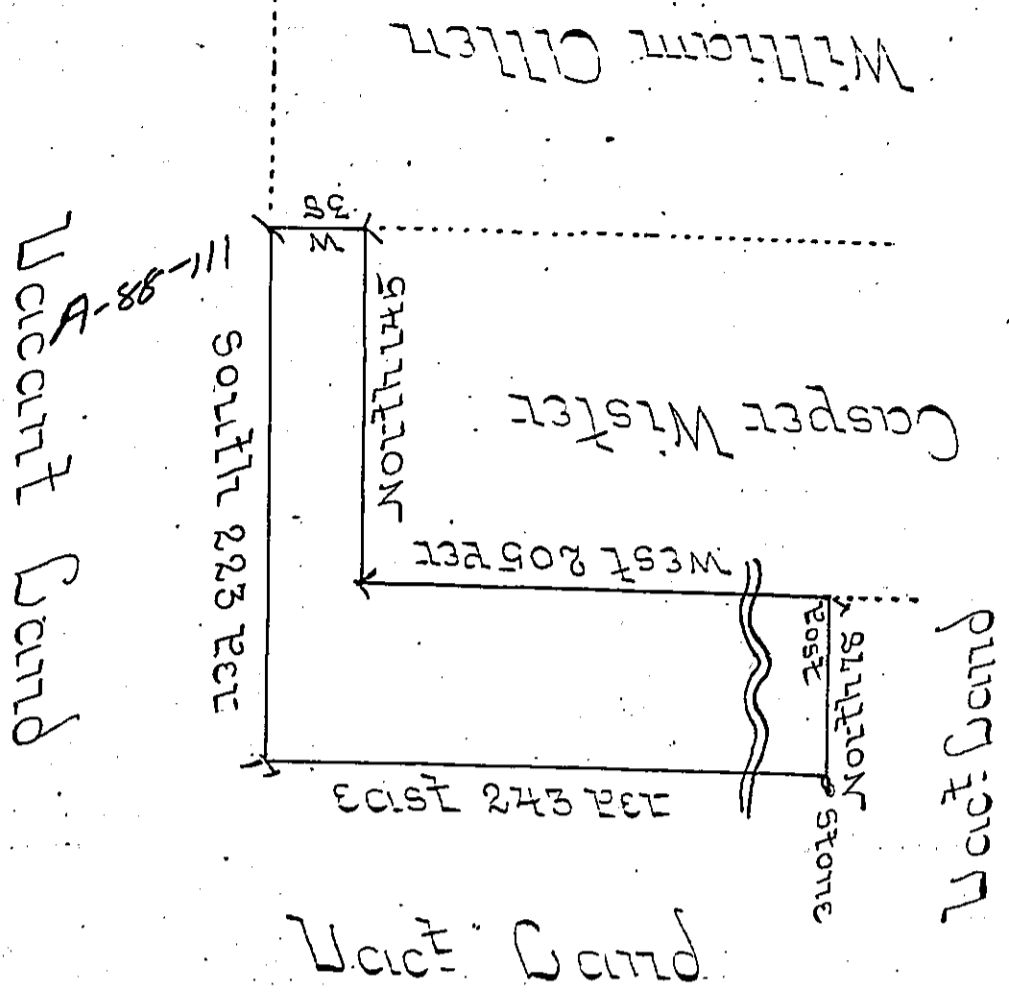 William Allen
W
38
A-88-111
Vacant Land
South 223 Per
North 145
Casper Wister
West 205 Per
Post
North 78
Vact Land
East 243 Per
Stone
Vact Land